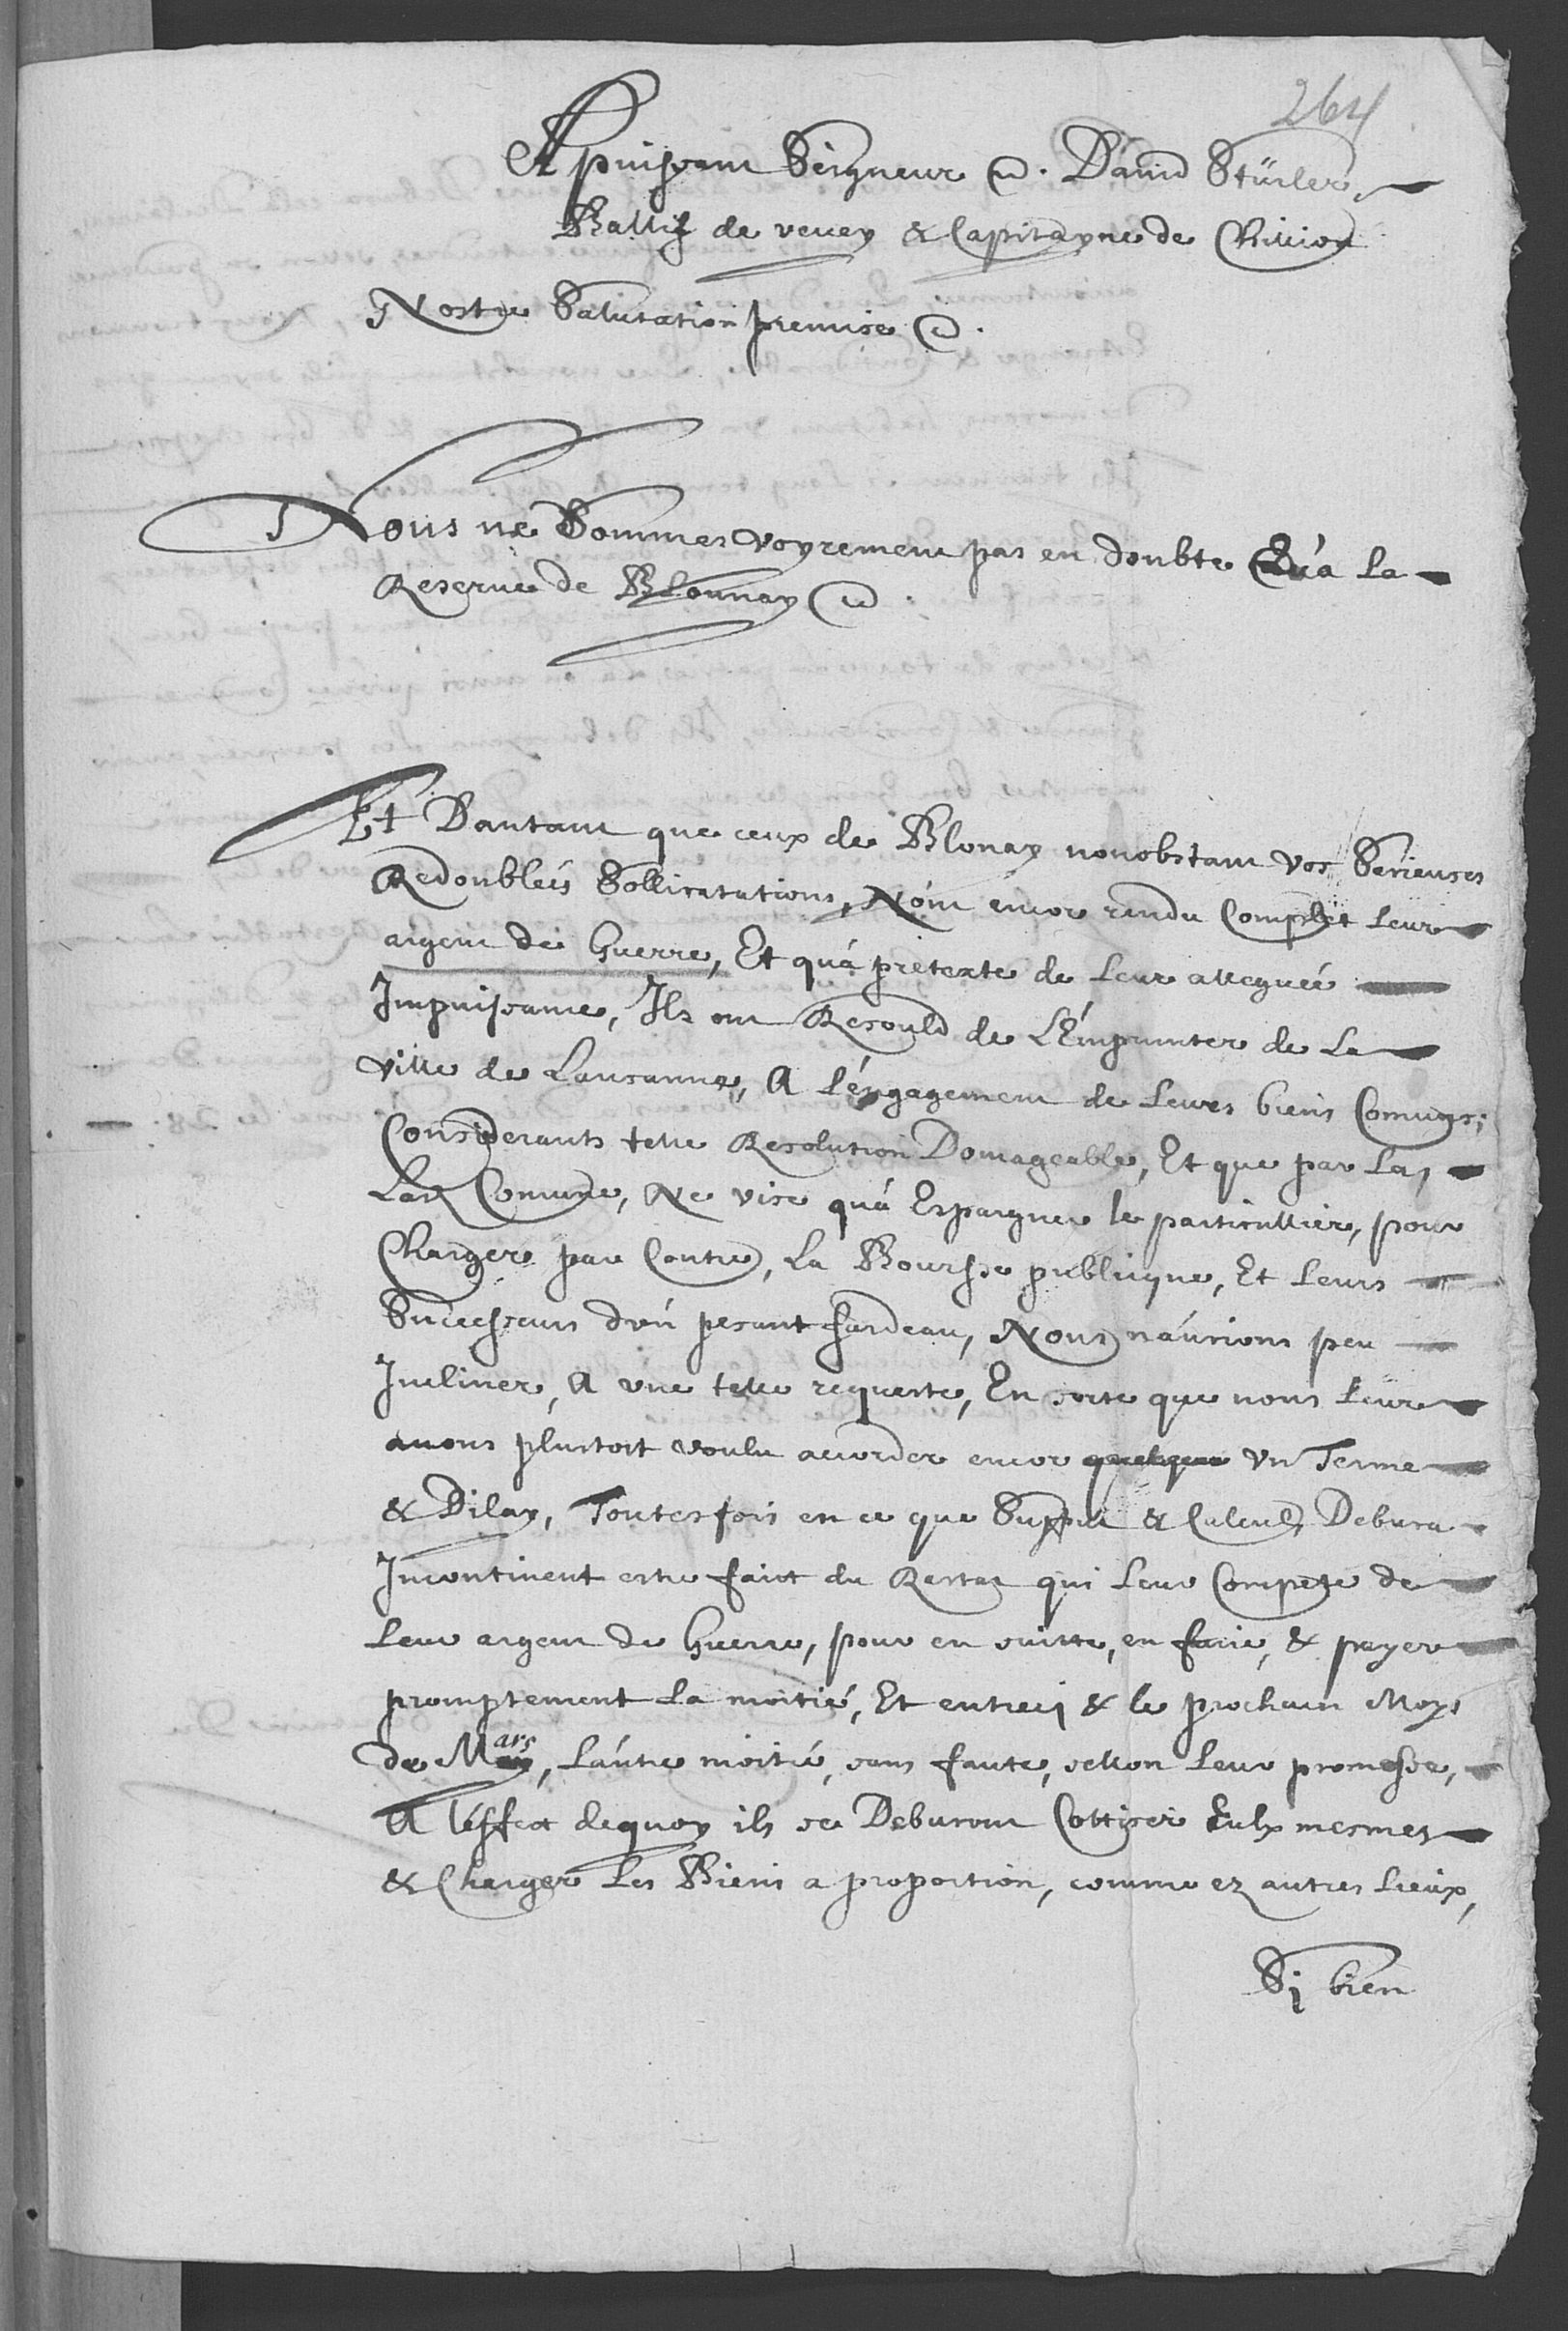 264
A puissant Seigneur etc. David Stürler,
Ballif de vevey & Capitayne de Chillion
Nostre Salutation premise etc.
Nous ne Sommes voyrement pas en doubte Qu'a la
Reserve de Blounay etc:
Et Dautant que ceux de Blonay nonobstant vos Serieuses
Redoubleés Sollicitations, N'ont encor rendu Complet leur
argent de Guerre, Et qu'a pretexte de leur alleguée
Impuissance, Ils ont Resould de L'Emprunter de La
ville de Lausanne, A l'éngagement de leurs biens Comuns;
Considerants telle Resolution Domageable, Et que par la,
Lad Comune, Ne vise qu'a Espargner le particullier, pour
Charger par Contre, La Boursse publicque, Et leurs
Successeurs d'vn pesant fardeau, Nous n'aurions peu
Incliner, A vne telle requeste, En sorte que nous leur
avons plustost voulu accorder encor quelque vn Terme
& Dilay, Toutesfois en ce que Supput & Calcul, Debvra
Incontinent estre faict du Restat qui leur Compete de
leur argent de Guerre, pour en suitte, en faire, & payer
promptement la moitié, Et entreci & le prochain Moys
de Mars, l'autre moitié, sans faute, sellon leur promesse,
A l'éffect dequoy ils se Debvront Cottiser Eulx mesmes
& Charger les Biens a proportion, comme ez autres lieux,
Si bien